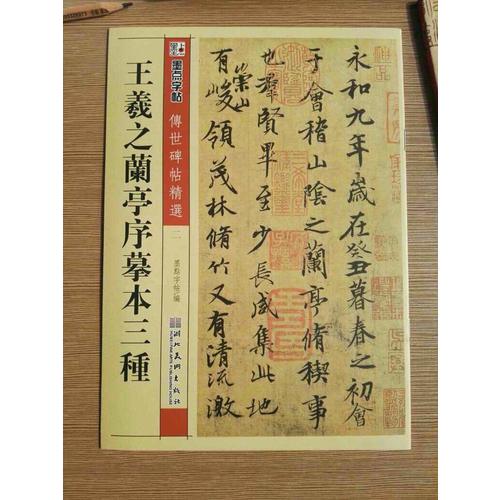 王羲之蘭亭序摹本三種
墨点字帖
傳世碑帖精選
二
墨點字帖/編
湖北美术出版社
永和九年歲在癸丑暮春之初會
于會稽山陰之蘭亭脩稧事
也羣賢畢至少長咸集此地
有崇山峻領茂林脩竹又有清流激